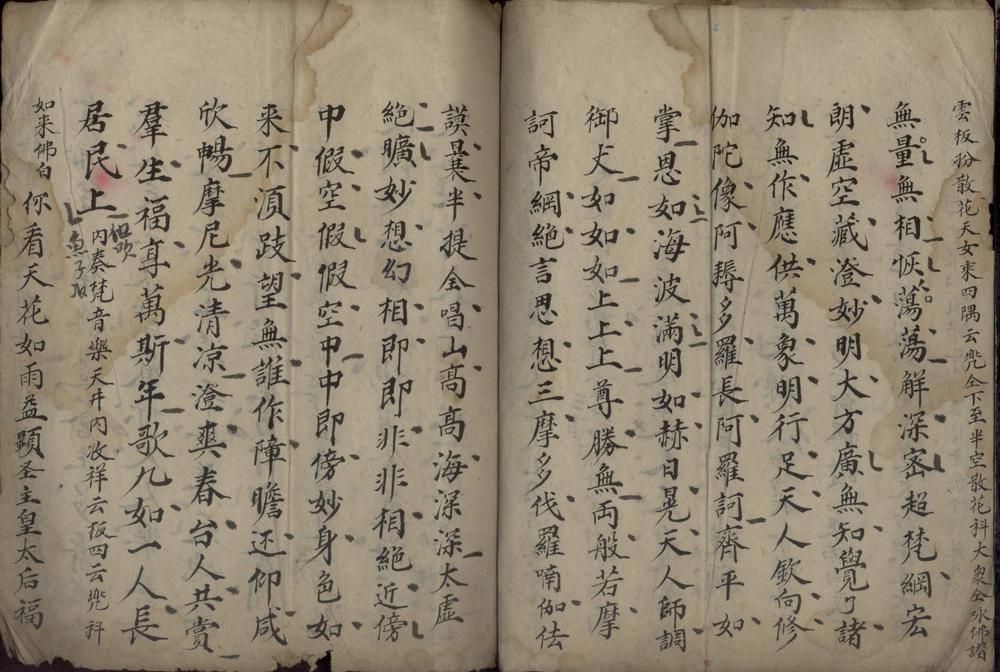 雲板扮散花天女乘四隅云兜仝下至半空散花科大衆仝咏佛讚
無量無相恢蕩蕩解深密超梵綱宏
朗虛空藏澄妙明大方廣無知覺了諸
知無作應供萬象明行足天人欽向修
伽陀像阿耨多羅長阿羅訶齊平如
掌恩如海波滿明如赫日晃天人師調
御丈如如如上上上尊勝無兩般若摩
訶帝綱絕言思想三摩多伐羅喃伽佉
謨曩半提仝唱山高高海深深太虛
絕曠妙想幻相即即非非相絕近傍
中假空假假空中中即傍妙身色如
来不湏跂望無誰作障瞻还仰咸
欣暢摩尼光清凉澄爽春台人共賞
羣生福享萬斯年歌九如一人長
居民上
但吹
魚子
内奏梵音樂天井内收祥云板四云兜科
如来佛白 你看天花如雨益顯圣主皇太后福